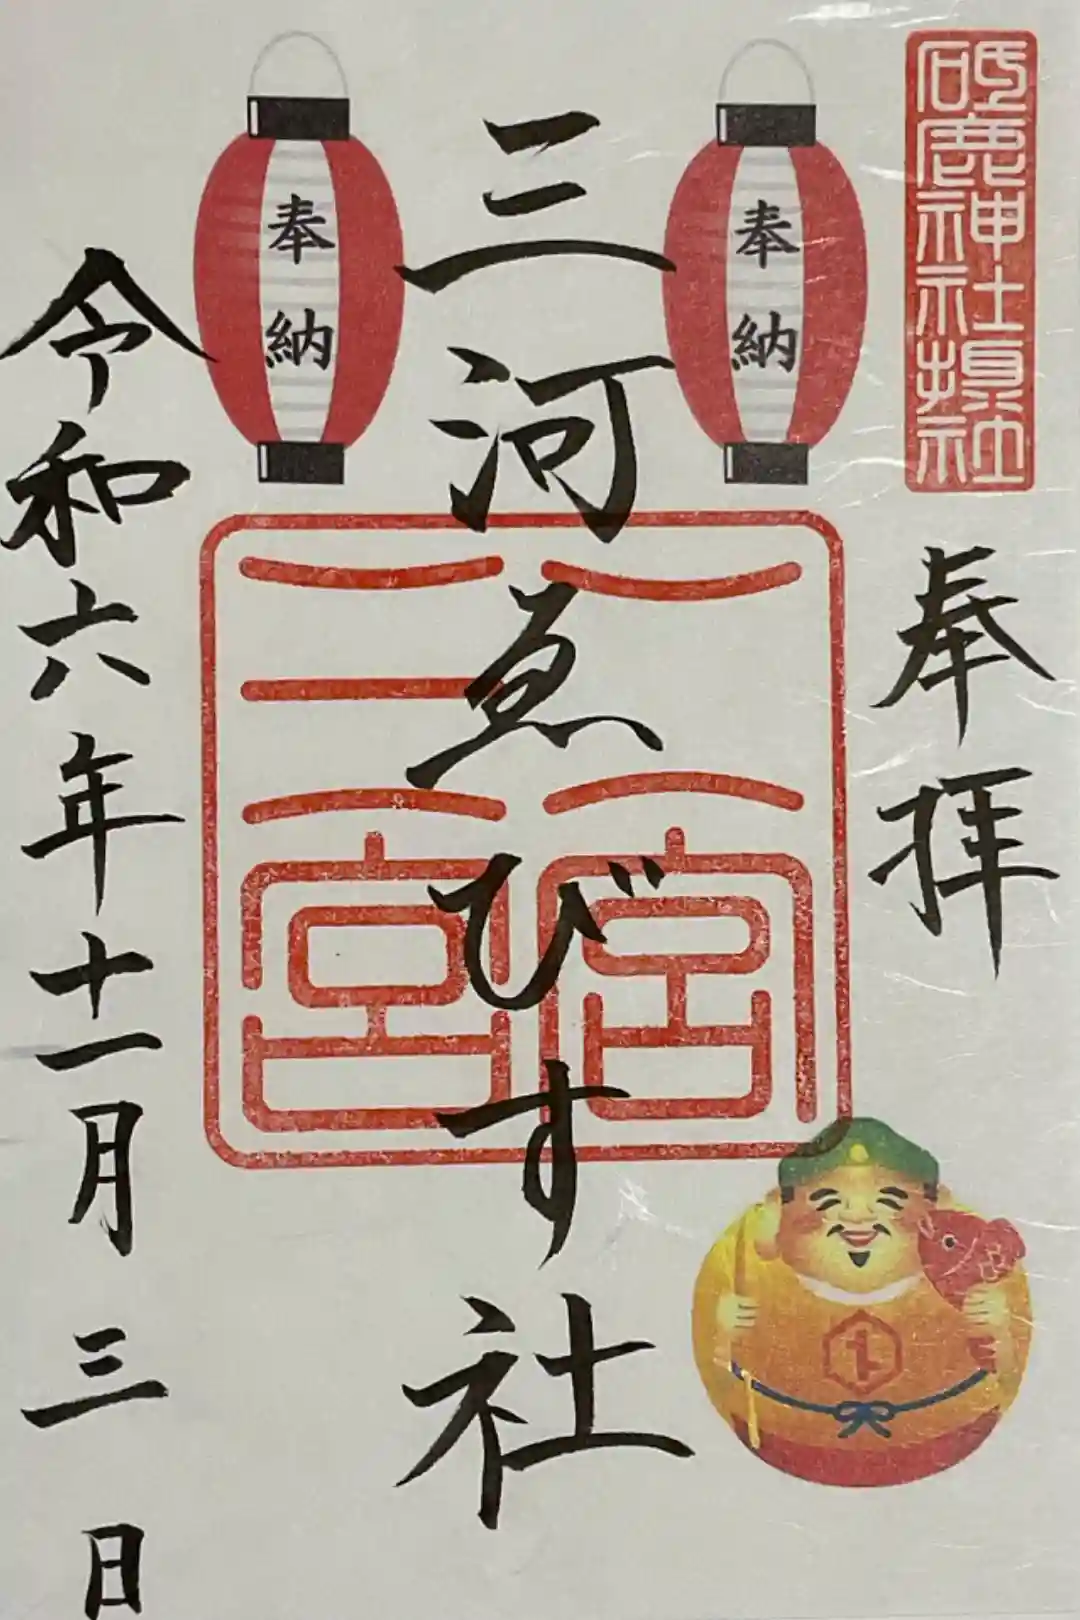 砥鹿神社摂社
奉拝
奉納
三河ゑびす社
奉納
二宮
三宮
令和六年十一月三日